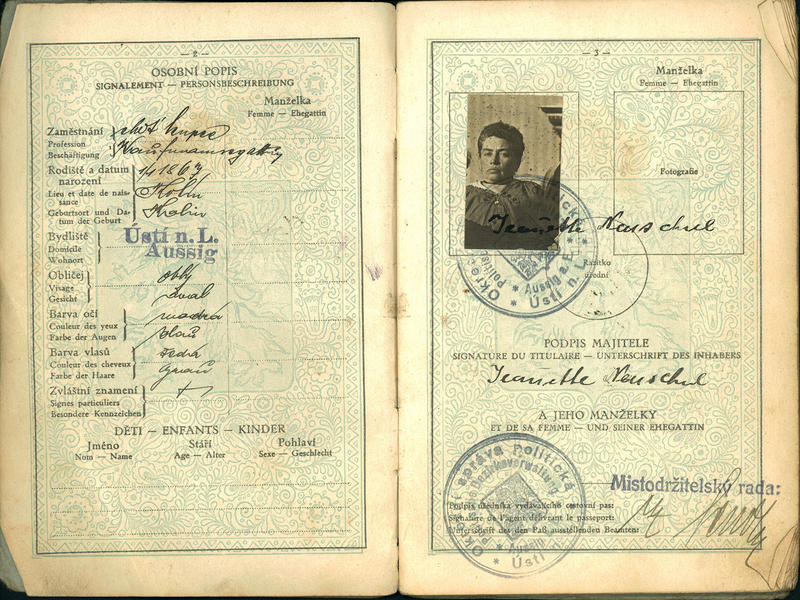 — 2 —
OSOBNÍ POPIS
SIGNALEMENT — PERSONSBESCHREIBUNG
Manželka
Femme — Ehegattin
Zaměstnání
Profession
Beschäftigung
choť kupce
Kaufmannsgattin
Rodiště a datum
narození
Lieu et date de nais-
sance
Geburtsort und Da-
tum der Geburt
Kolín
Kolin
Bydliště
Domicile
Wohnort
Ústí n. L.
Aussig
Obličej
Visage
Gesicht
oblý
oval
Barva očí
Couleur des yeux
Farbe der Augen
modrá
blau
Barva vlasů
Couleur des cheveux
Farbe der Haare
šedá
grau
Zvláštní znamení
Signes particuliers
Besondere Kennzeichen
DĚTI — ENFANTS — KINDER
Jméno
Nom — Name
Stáří
Age — Alter
Pohlaví
Sexe — Geschlecht
— 3 —
Manželka
Femme — Ehegattin
Fotografie
Jeanette Neuschul
Razítko
úřední
Aussig a. E.
Ústí n. L.
PODPIS MAJITELE
SIGNATURE DU TITULAIRE — UNTERSCHRIFT DES INHABERS
Jeanette Neuschul
A JEHO MANŽELKY
ET DE SA FEMME — UND SEINER EHEGATTIN
Okresní správa politická
Bezirksverwaltung
Ústí
Místodržitelský rada:
Podpis úředníka vydávajícího cestovní pas:
Signature de l'agent délivrant le passeport:
Unterschrift des den Paß ausstellenden Beamten: